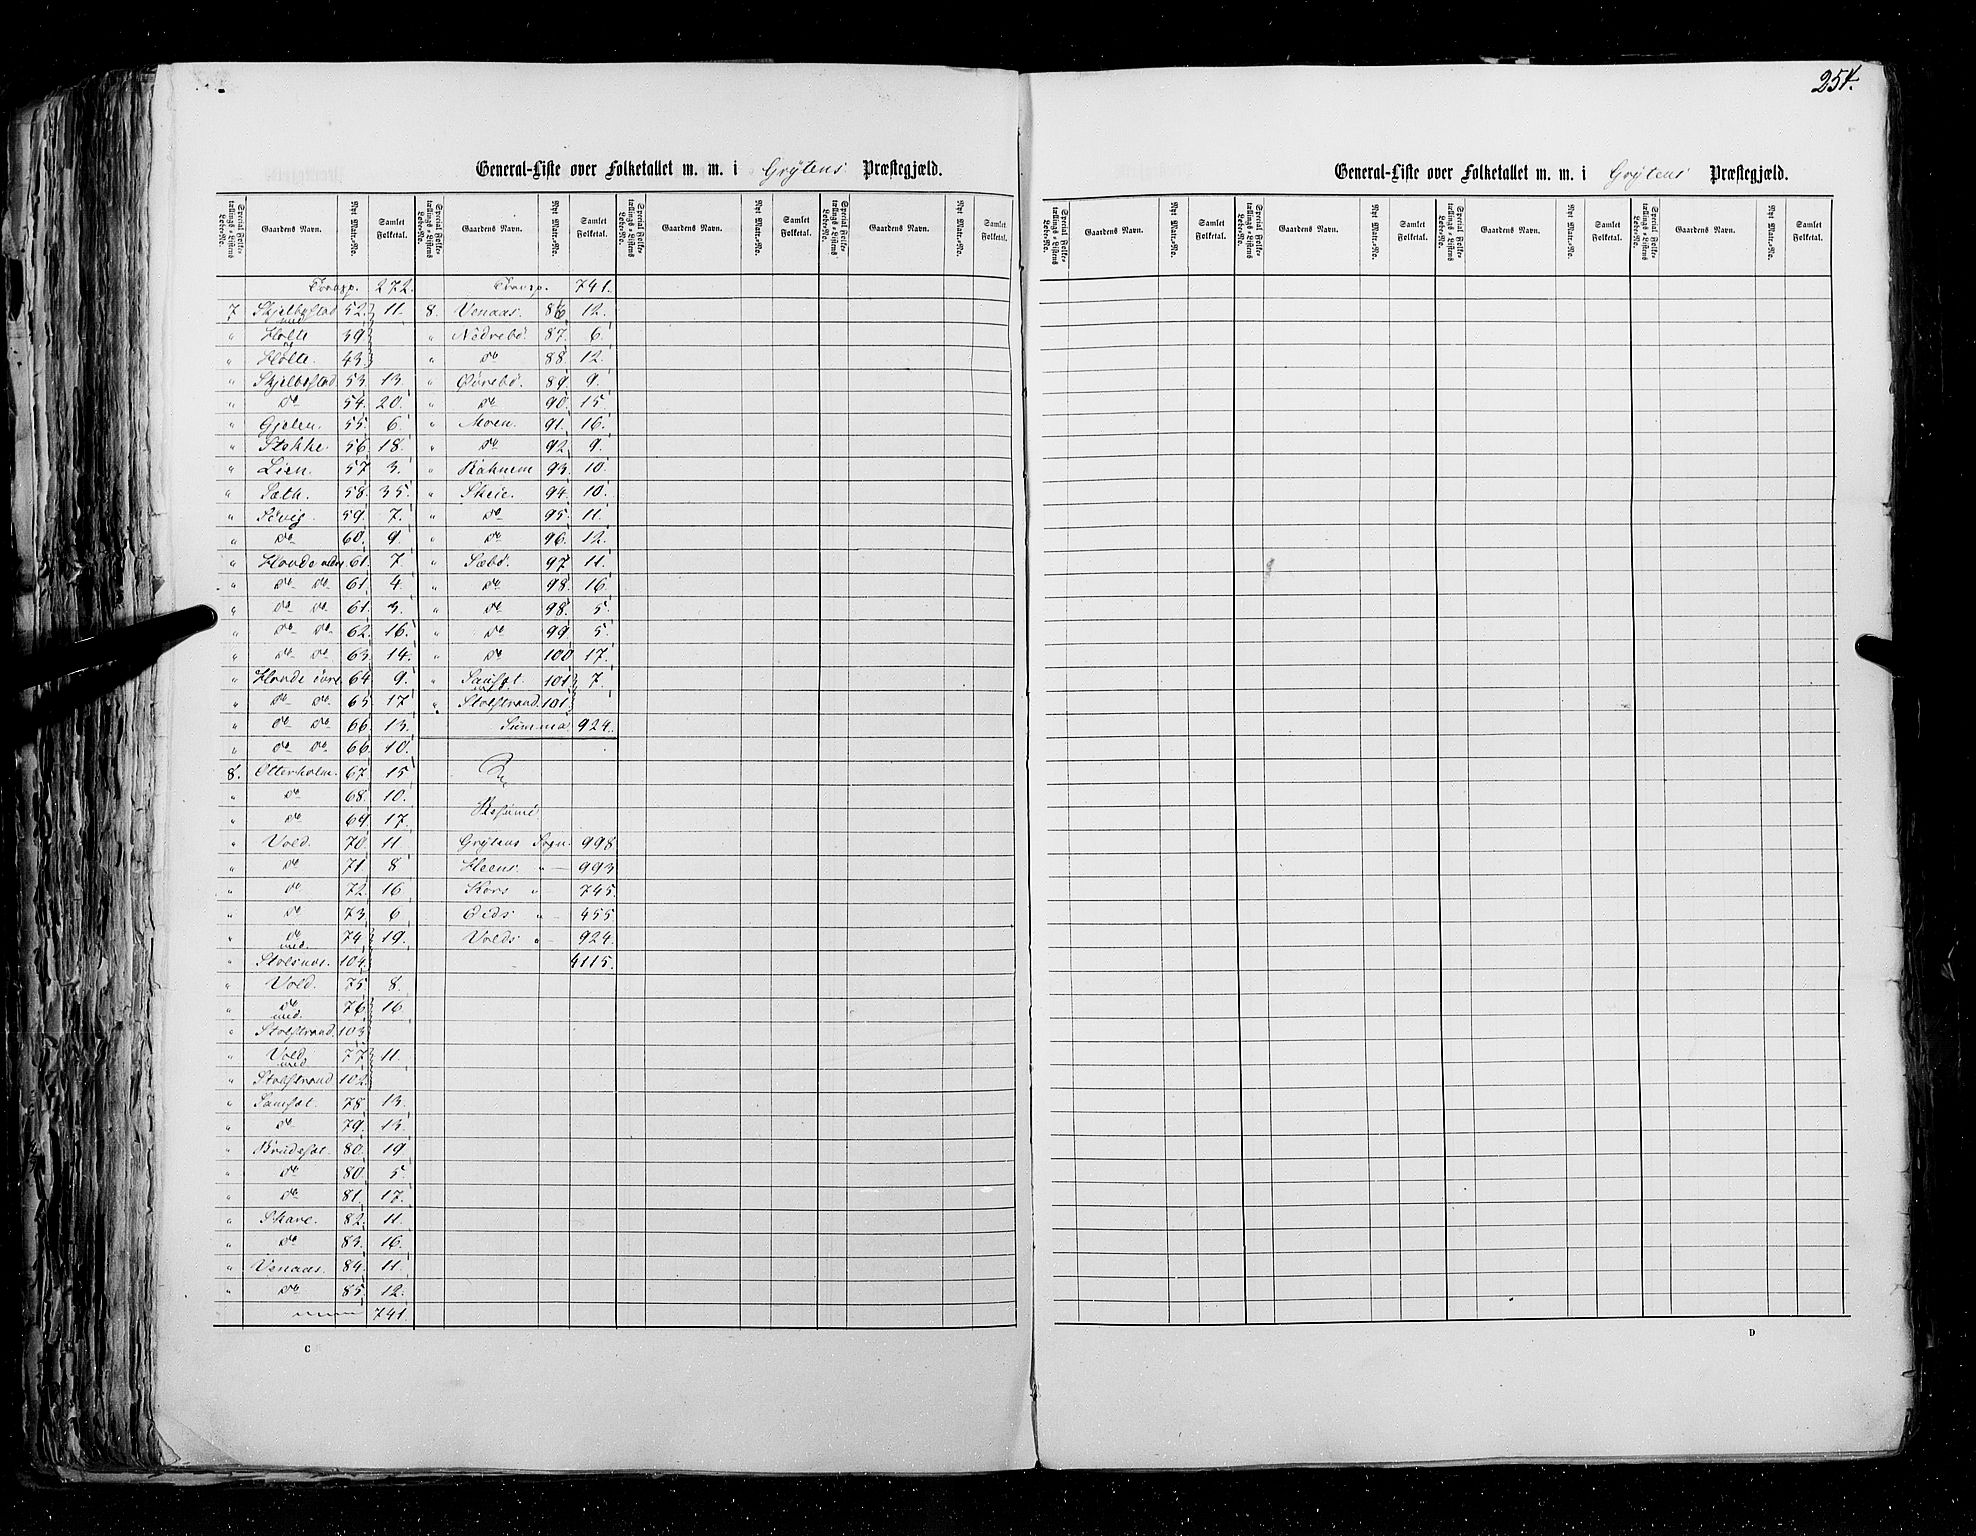 254.
General-Liste over Folketallet m. m. i Grytens Præstegjæld.
Special Folketællings-Listens Løbe-No. Gaardens Navn. Nyt Matr.-No. Samlet Folketal. Special Folketællings-Listens Løbe-No. Gaardens Navn. Nyt Matr.-No. Samlet Folketal. Special Folketællings-Listens Løbe-No. Gaardens Navn. Nyt Matr.-No. Samlet Folketal. Special Folketællings-Listens Løbe-No. Gaardens Navn. Nyt Matr.-No. Samlet Folketal.
Transp. 272.
7 Skjelbostad 52. 11.
med
" Holte 39
og
" Holte. 43.
" Skjelbostad 53. 13.
" do 54. 20.
" Gjelen. 55. 6.
" Stokke. 56. 18.
" Lien. 57. 3.
" Sæth. 58. 35.
" Sevig. 59. 7.
" do 60. 9.
" Hovde nedre 61. 7.
" do do 61. 4.
" do do 61. 3.
" do do 62. 16.
" do do 63. 14.
" Hovde övre 64 9.
" do do 65. 17
" do do 66. 13.
" do do 66. 10.
8. Otterholm. 67. 15
" do 68. 10.
" do 69 17.
" Vold. 70. 11
" do 71. 8
" do 72. 16
" do 73. 6
" do 74. 19.
med.
" Stolsnes. 104.
" Vold. 75. 8.
" do 76. 16
med.
" Stolstrand. 103.
" Vold. 77. 11.
med
" Stolstrand 102.
" Samset. 78 13.
" do 79. 13.
" Brudeset. 80. 19.
" do 80. 5.
" do 81. 17.
" Skare. 82. 11.
" do 83. 16.
" Venaas. 84. 11.
" do 85. 12.
741.
Transp. 741.
8. Venaas. 86 12.
" Nedrebö. 87. 6.
" do 88 12.
" Övrebö. 89. 9.
" do 90. 15.
" Moen. 91. 16.
" do 92. 9.
" Kahnem 93. 10.
" Skeie. 94. 10.
" do 95. 11.
" do 96. 12.
" Sæbö. 97 11.
" do 98. 16.
" do 98. 5.
" do 99. 5.
" do 100 17.
" Samset 101. 7.
med.
" Stolstrand. 101.
Summa 924.
Resumé
Grytens Sogn. 998
Heens " 993
Kors " 745.
Eids " 455
Volds " 924.
4115.
C
General-Liste over Folketallet m. m. i Grytens Præstegjæld.
Special Folketællings-Listens Løbe-No. Gaardens Navn. Nyt Matr.-No. Samlet Folketal. Special Folketællings-Listens Løbe-No. Gaardens Navn. Nyt Matr.-No. Samlet Folketal. Special Folketællings-Listens Løbe-No. Gaardens Navn. Nyt Matr.-No. Samlet Folketal. Special Folketællings-Listens Løbe-No. Gaardens Navn. Nyt Matr.-No. Samlet Folketal.
D